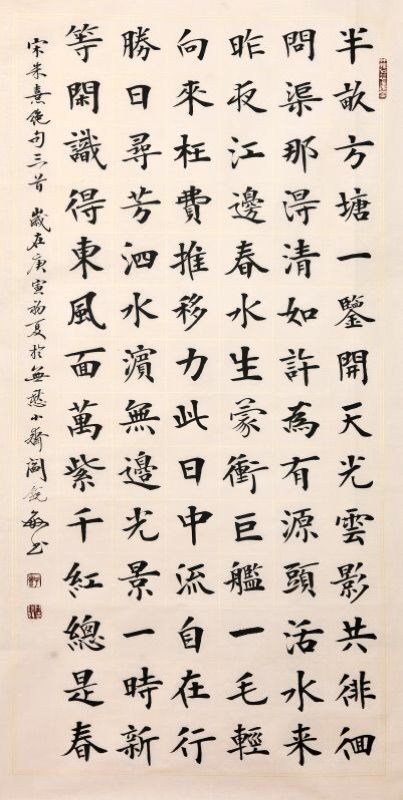 半畝方塘一鑒開天光雲影共徘徊
問渠那得清如許為有源頭活水来
昨夜江邊春水生蒙衝巨艦一毛輕
向來枉費推移力此日中流自在行
勝日尋芳泗水濱無邊光景一時新
等閑識得東風面萬紫千紅總是春
宋朱熹絕句三首 歲在庚寅初夏於無愁小齋閻銳敏书